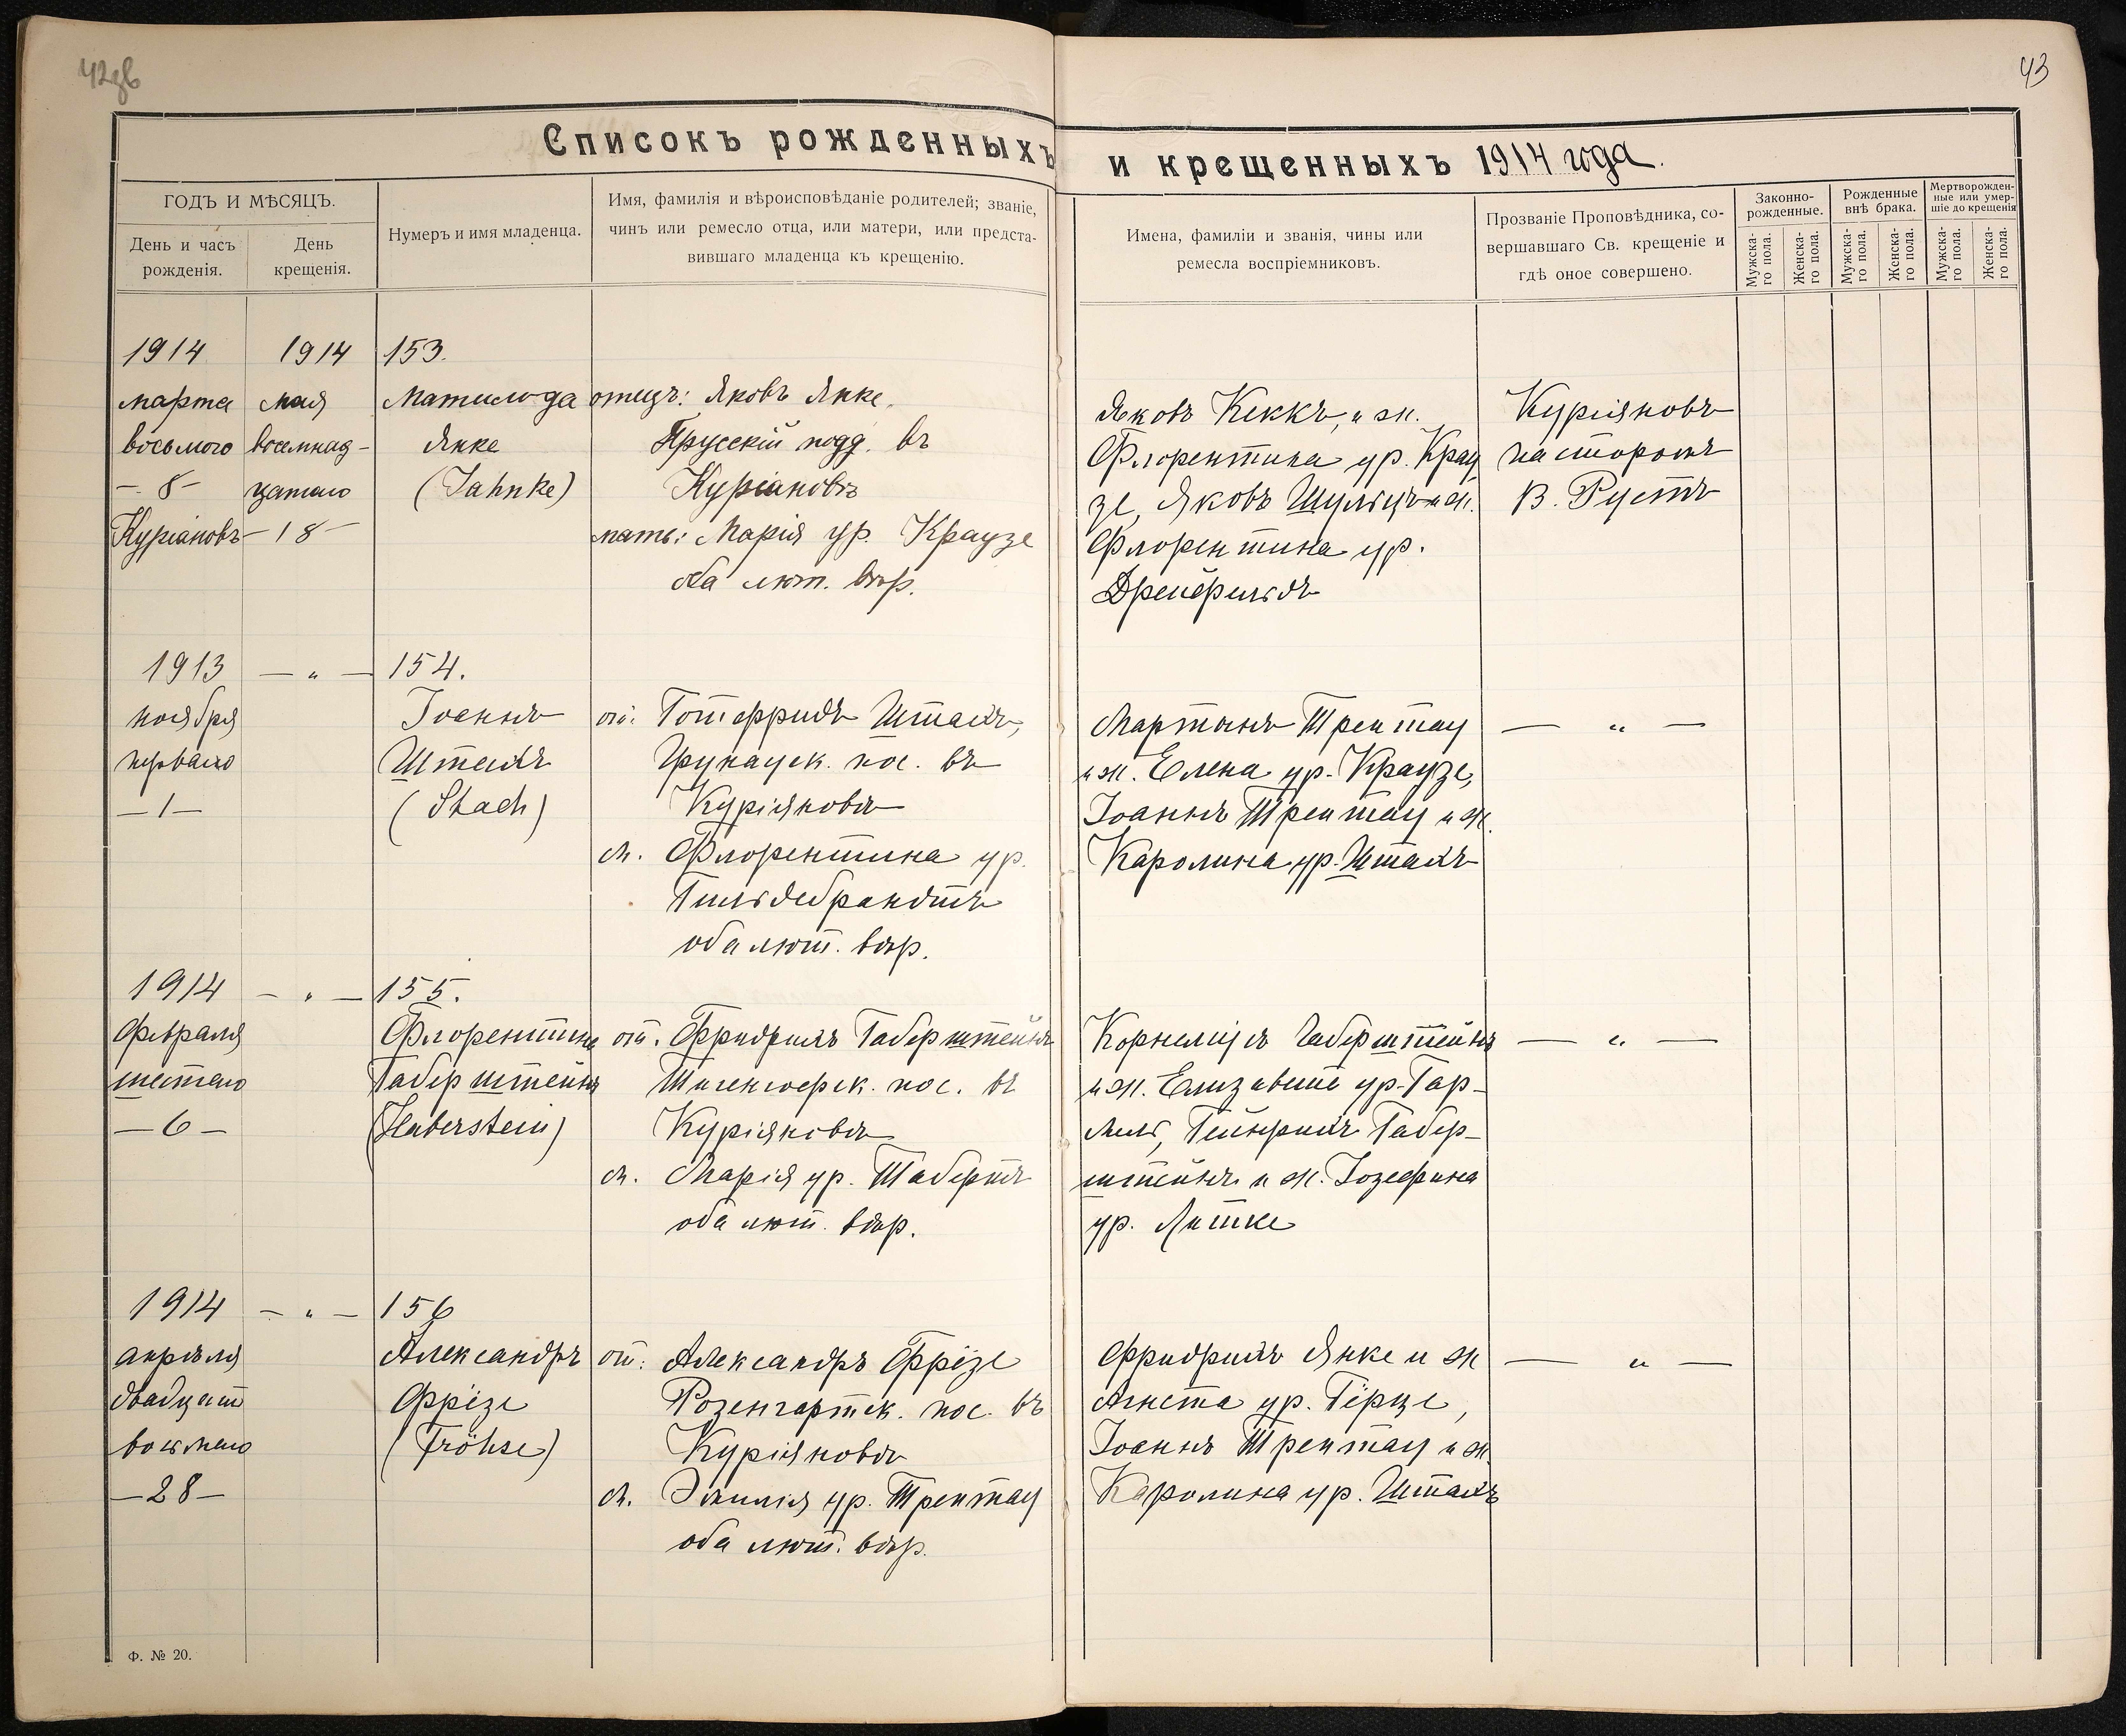 42зв
43
Списокъ рожденныхъ и крещенныхъ 1914 года.
ГОДЪ И МѢСЯЦЪ.
День и часъ рожденія.
День крещенія.
Нумеръ и имя младенца.
Имя, фамилія и вѣроисповѣданіе родителей; званіе,
чинъ или ремесло отца, или матери, или предста-
вившаго младенца къ крещенію.
Имена, фамиліи и званія, чины или
ремесла воспріемниковъ.
Прозваніе Проповѣдника, со-
вершавшаго Св. крещеніе и
гдѣ оное совершено.
Законно-
рожденные.
Рожденные
внѣ брака.
Мертворожден-
ные или умер-
шіе до крещенія
Мужска-
го пола.
Женска-
го пола.
Мужска-
го пола.
Женска-
го пола.
Мужска-
го пола.
Женска-
го пола.
1914
марта
восьмого
- 8 -
Куріановъ
1914
мая
восемнад-
цатаго
- 18 -
153.
Матильда
Янке
(Jahnke)
отецъ: Яковъ Янке,
Прусскій подд. въ
Куріановѣ
мать: Марія ур. Краузе
оба лют. вѣр.
Яковъ Кеккъ, и ж.
Флорентина ур. Крау
зе, Яковъ Шульцъ и ж.
Флорентина ур.
Дрейфельдъ
Куріяновъ
пасторомъ
В. Рустъ
1913
ноября
перваго
- 1 -
- " -
154.
Іоаннъ
Штахъ
(Stach)
от. Готфридъ Штахъ,
Грунауск. пос. въ
Куріяновѣ
м. Флорентина ур.
Гильдебрандтъ
оба лют. вѣр.
Мартынъ Трептау
и ж. Елена ур. Краузе,
Іоаннъ Трептау и ж.
Каролина ур. Штахъ
- " -
1914
февраля
шестаго
- 6 -
- " -
155.
Флорентина
Габерштейнъ
(Haberstein)
от. Фридрихъ Габерштейнъ
Тигенгофск. пос. въ
Куріяновѣ
м. Марія ур. Табертъ
оба лют. вѣр.
Корнеліусъ Габерштейнъ
и ж. Елизавета ур. Гар-
мель, Гейнрихъ Габер-
штейнъ и ж. Іозефина
ур. Литке
- " -
1914
апрѣля
двадцат
восьмаго
- 28 -
- " -
156
Александръ
Фрёзе
(Fröhse)
от: Александръ Фрёзе
Розенгартск. пос. въ
Куріяновѣ
м. Эмилія ур. Трептау
оба лют. вѣр.
Фридрихъ Янке и ж
Агнета ур. Гёрце,
Іоаннъ Трептау и ж.
Каролина ур. Штахъ
- " -
Ф. № 20.